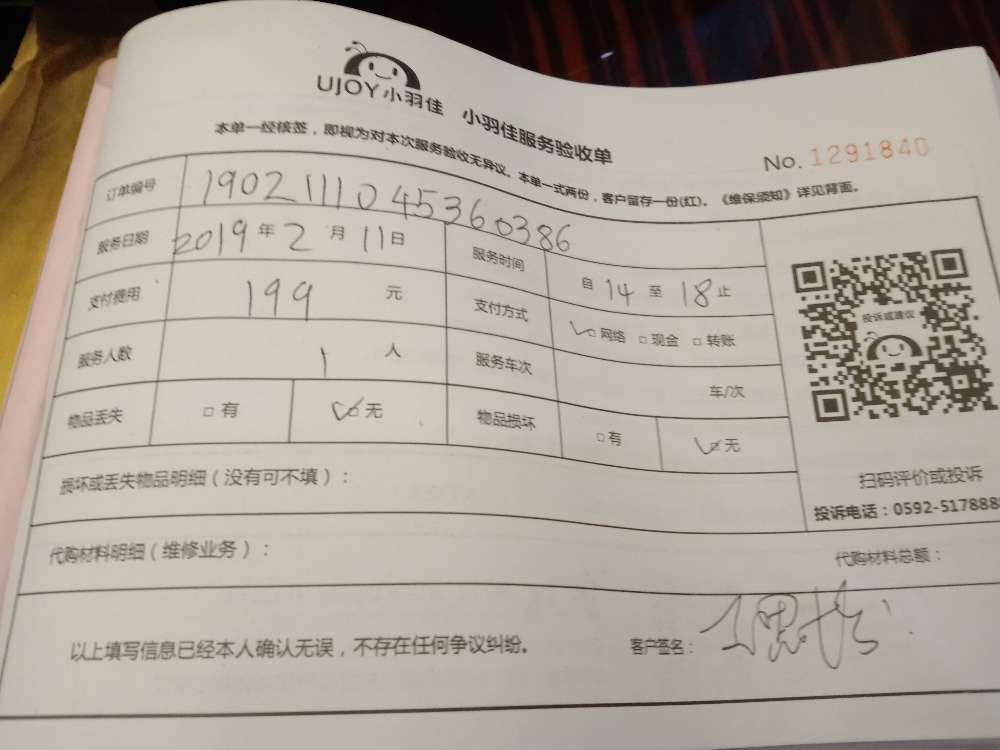 UJOY小羽佳 小羽佳服务验收单
本单一经核签，即视为对本次服务验收无异议。本单一式两份，客户留存一份(红)。《维保须知》详见背面。
No. 1291840
订单编号 190211104536 0386
服务日期 2019年2月11日 服务时间 自14至18止
支付费用 199元 支付方式 ✓□网络 □现金 □转账
服务人数 1人 服务车次 车/次
物品丢失 □有 ✓□无 物品损坏 □有 ✓□无
投诉或建议
扫码评价或投诉
投诉电话：0592-517888
损坏或丢失物品明细（没有可不填）：
代购材料明细（维修业务）： 代购材料总额：
以上填写信息已经本人确认无误，不存在任何争议纠纷。 客户签名：